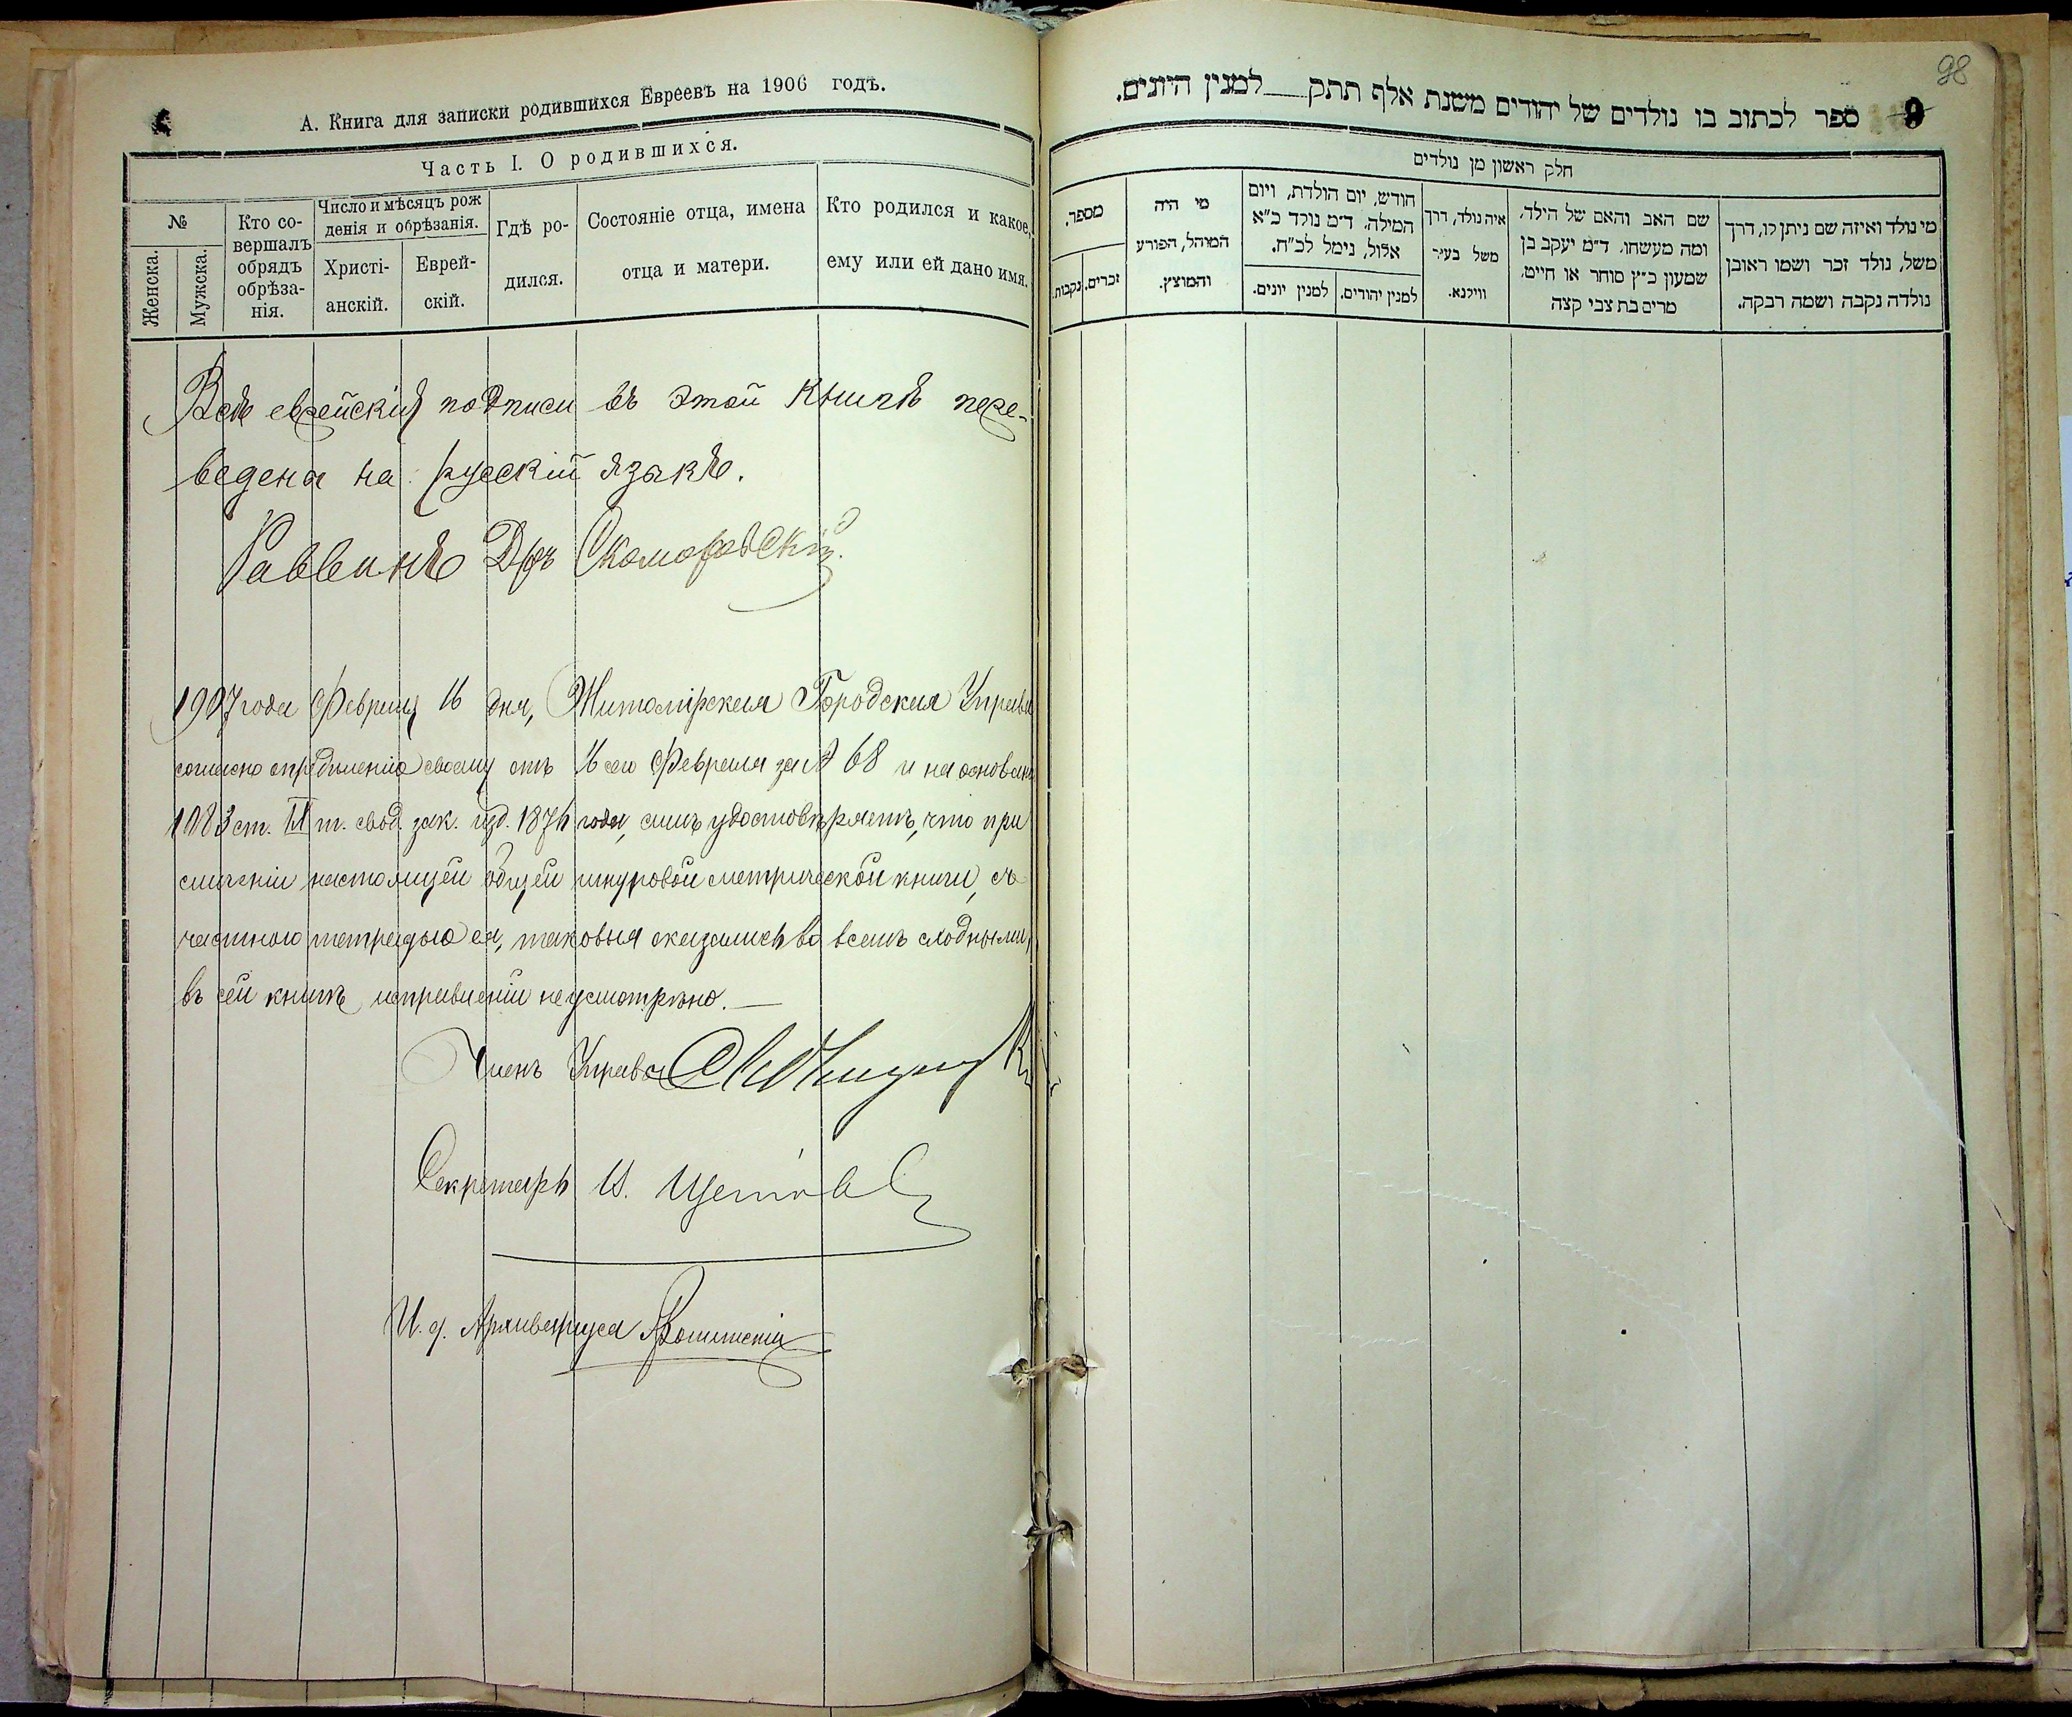 А. Книга для записки родившихся Евреевъ на 1906 годъ.
Часть I. О родившихся.
№
Женска.
Мужска.
Кто со-
вершалъ
обрядъ
обрѣза-
нія.
Число и мѣсяцъ рож
денія и обрѣзанія.
Христі-
анскій.
Еврей-
скій.
Гдѣ ро-
дился.
Состояніе отца, имена
отца и матери.
Кто родился и какое,
ему или ей дано имя.
Всѣ еврейскія подписи въ этой книгѣ пере-
ведены на русскій языкъ.
Раввинъ Дръ Скомаровскій.
1907 года Февраля 16 дня, Житомірская Городская Управа
согласно опредѣленію своему отъ 16 сего Февраля за № 68 и на основан
1083 ст. IX т. свод. зак. изд. 1876 года, симъ удостовѣряетъ, что при
сличеніи настоящей общей шнуровой метрической книги, съ
частною тетрадью ея, таковыя оказались во всемъ сходными,
въ сей книгѣ исправленій не усмотрѣно. —
Членъ Управы
Секретарь И.
И. д. Архиваріуса
98
9 ספר לכתוב בו נולדים של יהודים משנת אלף תתק__למנין היונים.
חלק ראשון מן נולדים
מי נולד ואיזה שם ניתן לו, דרך
משל, נולד זכר ושמו ראובן
נולדה נקבה ושמה רבקה.
שם האב והאם של הילד,
ומה מעשהו, ד״מ יעקב בן
שמעון כ״ץ סוחר או חייט,
מרים בת צבי קצה
איה נולד, דרך
משל בעיר
ווילנא.
חודש, יום הולדת, ויום
המילה, ד״מ נולד כ״א
אלול, נימל לכ״ח.
למנין יהודים.
למנין יונים.
מי היה
המוהל, הפורע
והמוצץ.
מספר.
זכרים.
נקבות.